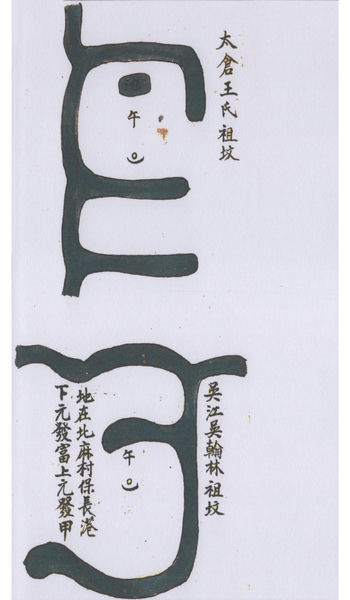 太倉王氏祖坟
池
午
吴江吴翰林祖坟
午
地在北麻村保長港
下元發富上元發甲